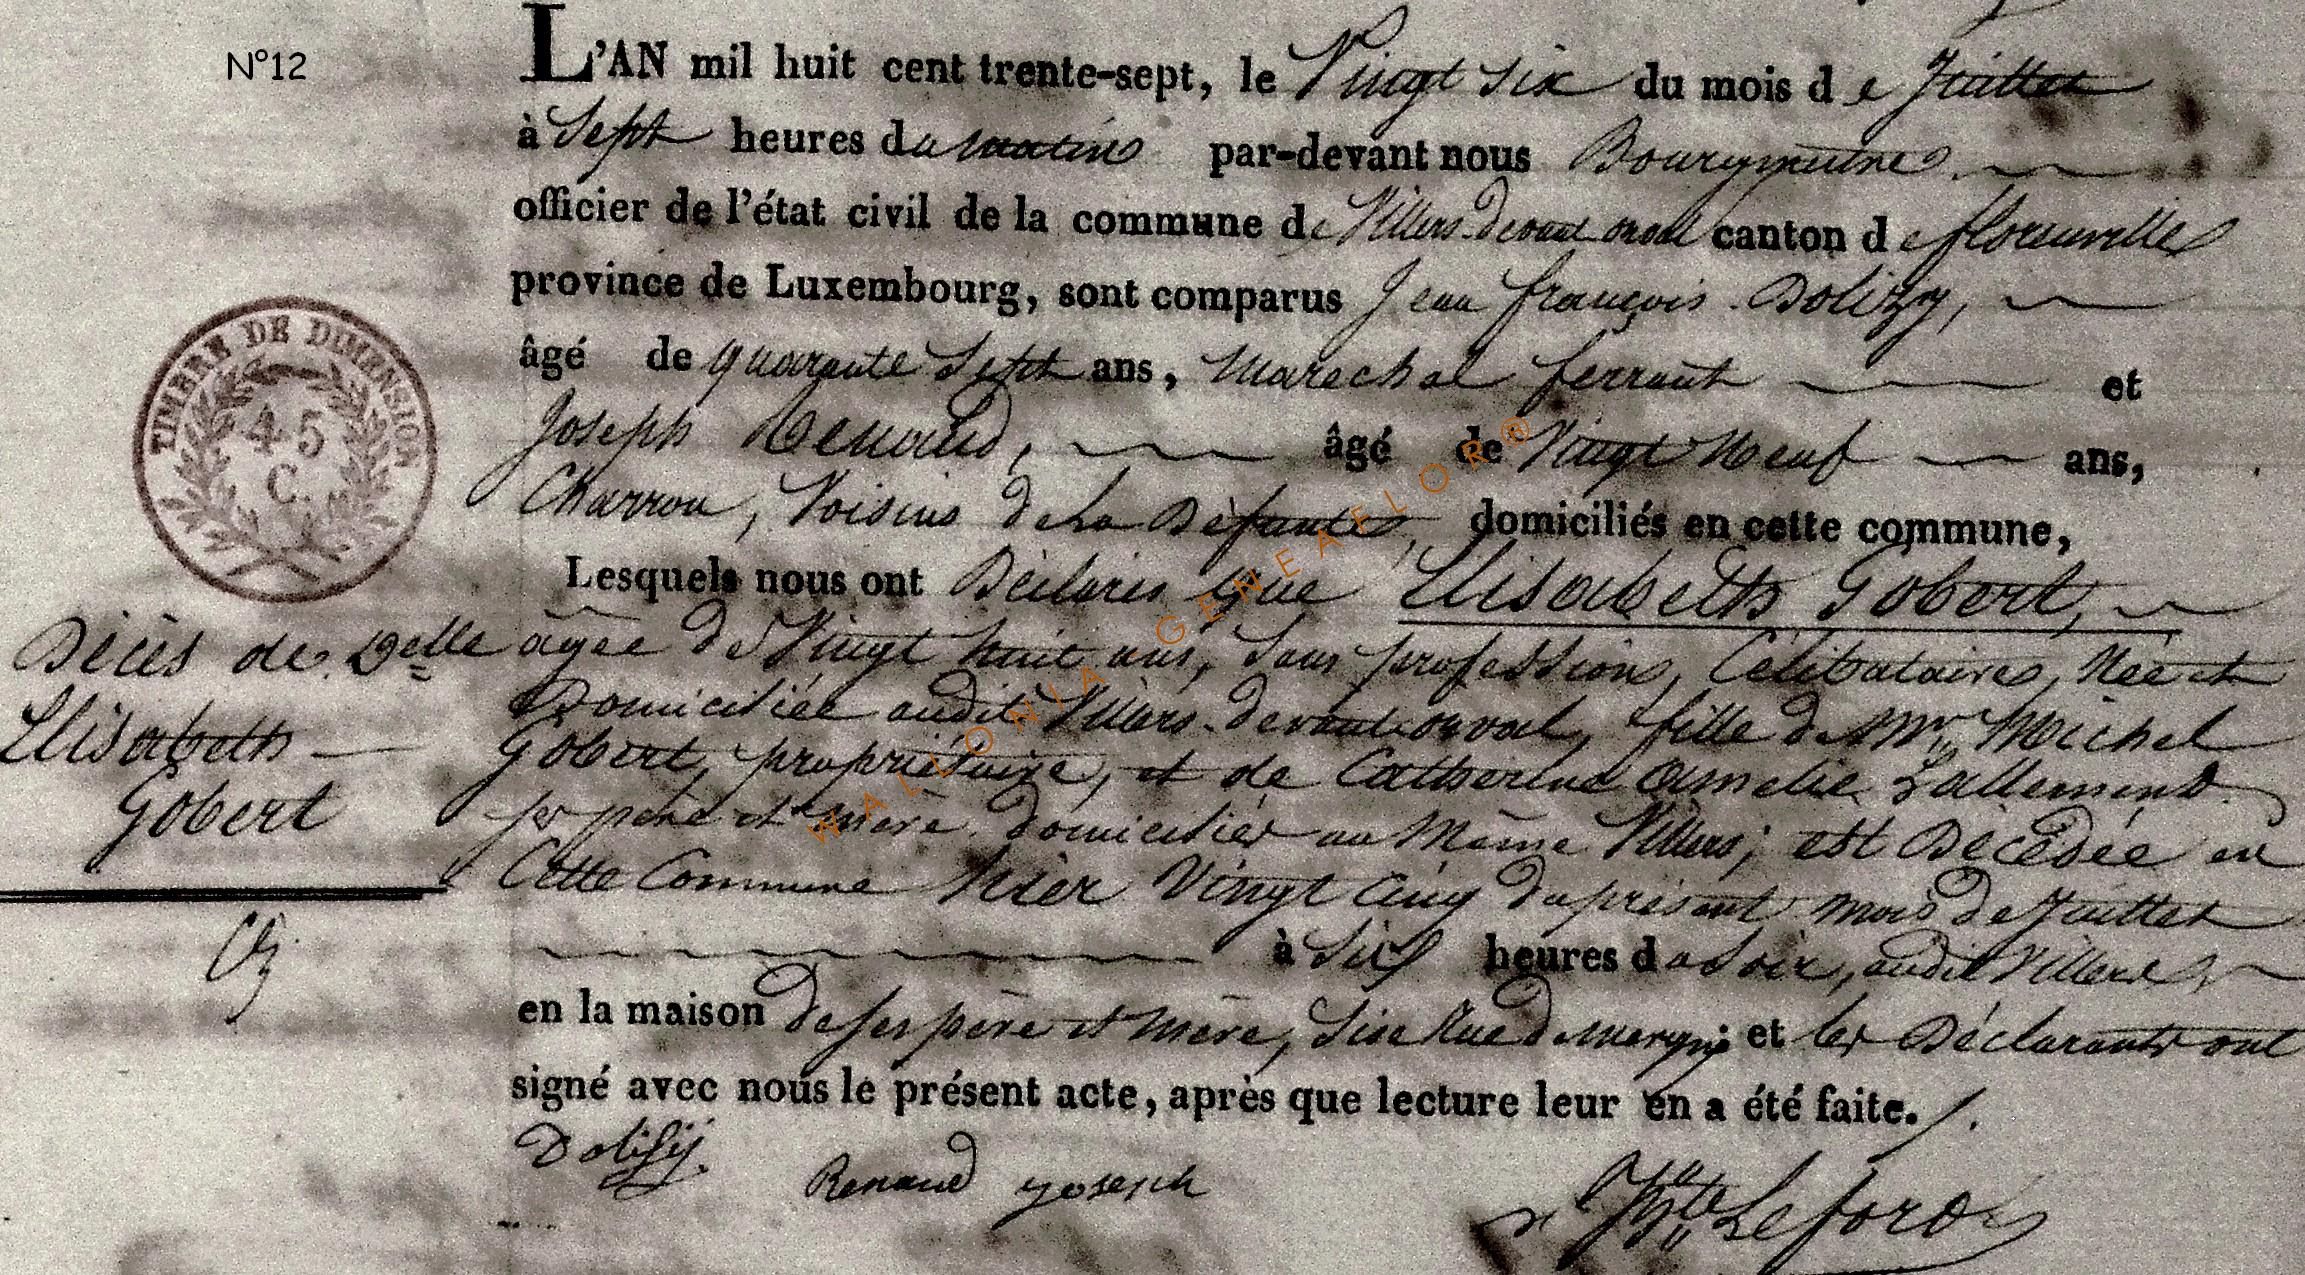 N°12
L'AN mil huit cent trente-sept, le Vingt Six du mois de Juillet
à Sept heures du matin par-devant nous Bourgmestre
officier de l'état civil de la commune de Villers-devant orval canton de florenville
province de Luxembourg, sont comparus Jean françois Dolizy,
âgé de quarante Sept ans, Marechal ferrant et
Joseph Renaud, âgé de Vingt Neuf ans,
Charron, Voisins de La Défunte, domiciliés en cette commune,
Lesquels nous ont Déclarés que Elisabeth Gobert,
âgée de Vingt huit ans, Sans profession, Célibataire, Née et
Domiciliée audit Villers-devant orval, fille de Mr. Michel
Gobert, propriétaire, et de Catherine Amelie Lallemend
ses père et mère domiciliés au Même Villers; est Décédée en
Cette Commune hier Vingt Cinq du présent mois de Juillet
à Six heures du Soir, audit Villers,
en la maison de ses père et mère, Sise Rue de Margny; et les Déclarants ont
signé avec nous le présent acte, après que lecture leur en a été faite.
Dolisij. Renaud Joseph
Hte Lefort
TIMBRE DE DIMENSION
45
C.
Décès de Delle
Elisabeth
Gobert
WALLONIA GENEAFLOR®